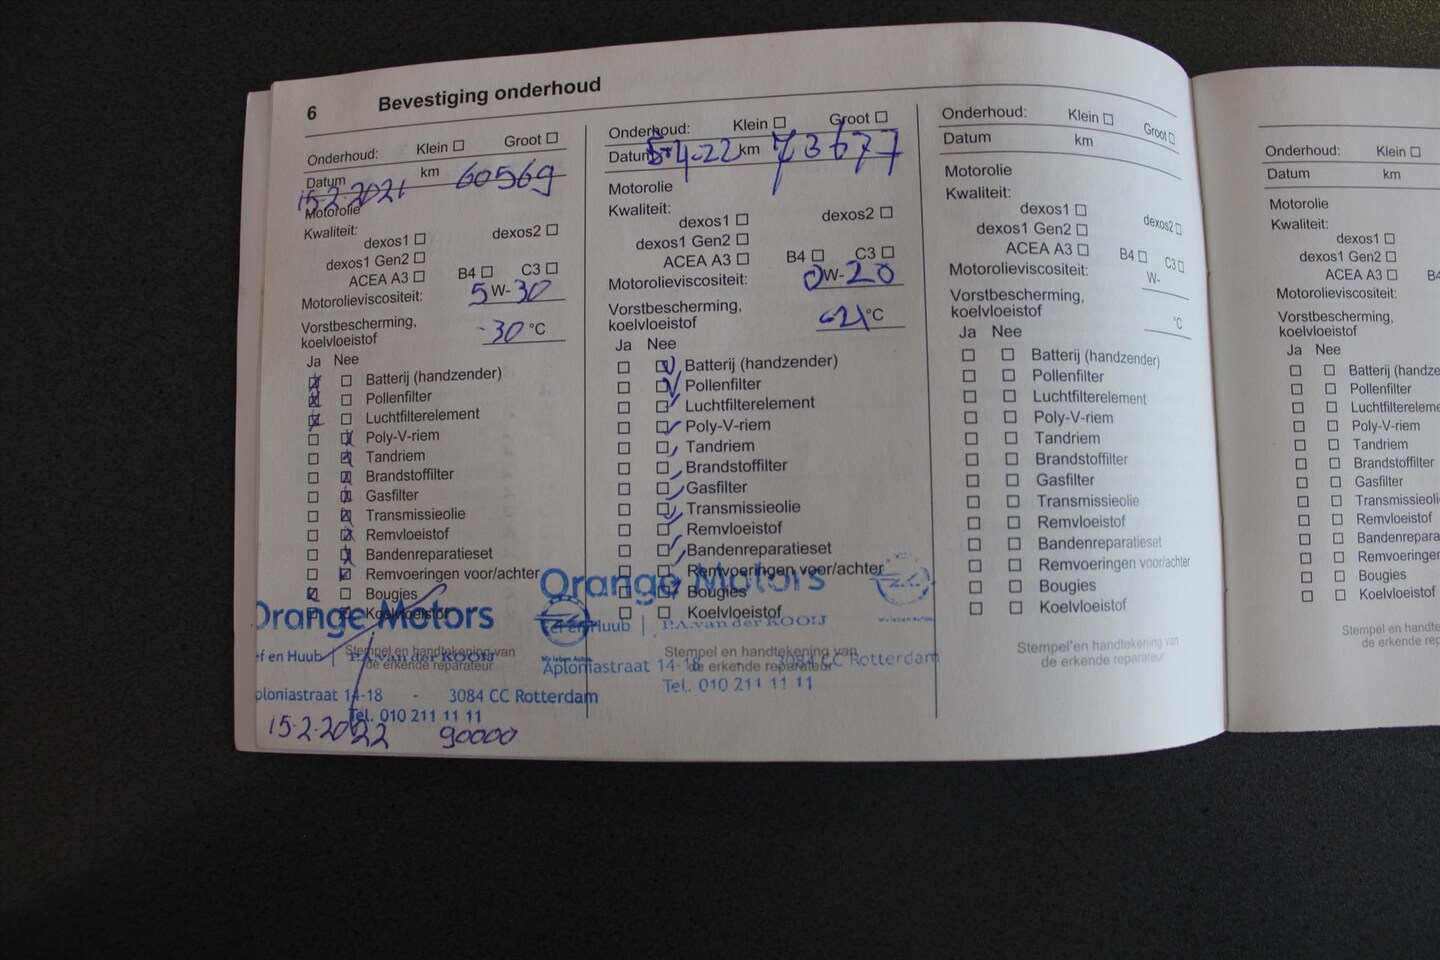 6 Bevestiging onderhoud
Onderhoud: Klein Groot
Datum km 60569
15-2-2021
Motorolie
Kwaliteit:
dexos1 dexos2
dexos1 Gen2
ACEA A3 B4 C3
Motorolieviscositeit: 5 W- 30
Vorstbescherming,
koelvloeistof -30 °C
Ja Nee
Batterij (handzender)
Pollenfilter
Luchtfilterelement
Poly-V-riem
Tandriem
Brandstoffilter
Gasfilter
Transmissieolie
Remvloeistof
Bandenreparatieset
Remvoeringen voor/achter
Bougies
Koelvloeistof
Orange Motors
ef en Huub | P.A. van der KOOIJ
Stempel en handtekening van
de erkende reparateur
ploniastraat 14-18 - 3084 CC Rotterdam
Tel. 010 211 11 11
15-2-2022 90000
Onderhoud: Klein Groot
Datum 5-4-22 km 73677
Motorolie
Kwaliteit:
dexos1 dexos2
dexos1 Gen2
ACEA A3 B4 C3
Motorolieviscositeit: 0 W- 20
Vorstbescherming,
koelvloeistof -21 °C
Ja Nee
Batterij (handzender)
Pollenfilter
Luchtfilterelement
Poly-V-riem
Tandriem
Brandstoffilter
Gasfilter
Transmissieolie
Remvloeistof
Bandenreparatieset
Remvoeringen voor/achter
Bougies
Koelvloeistof
Orange Motors
Wir leben Autos.
ef en Huub | P.A. van der KOOIJ
Stempel en handtekening van
de erkende reparateur
Aploniastraat 14-18 - 3084 CC Rotterdam
Tel. 010 211 11 11
Onderhoud: Klein Groot
Datum km
Motorolie
Kwaliteit:
dexos1 dexos2
dexos1 Gen2
ACEA A3 B4 C3
Motorolieviscositeit: W-
Vorstbescherming,
koelvloeistof °C
Ja Nee
Batterij (handzender)
Pollenfilter
Luchtfilterelement
Poly-V-riem
Tandriem
Brandstoffilter
Gasfilter
Transmissieolie
Remvloeistof
Bandenreparatieset
Remvoeringen voor/achter
Bougies
Koelvloeistof
Stempel en handtekening van
de erkende reparateur
Onderhoud: Klein
Datum km
Motorolie
Kwaliteit:
dexos1
dexos1 Gen2
ACEA A3 B4
Motorolieviscositeit:
Vorstbescherming,
koelvloeistof
Ja Nee
Batterij (handze
Pollenfilter
Luchtfiltereleme
Poly-V-riem
Tandriem
Brandstoffilter
Gasfilter
Transmissieoli
Remvloeistof
Bandenrepara
Remvoeringen
Bougies
Koelvloeistof
Stempel en handte
de erkende